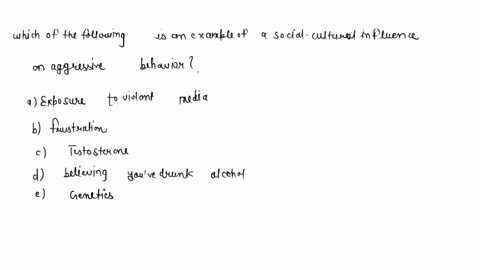 which of the following is an example of a social-cultural influence
on aggressive behavior?
a) Exposure to violent media
b) frustration
c) Testosterone
d) believing you've drunk alcohol
e) Genetics